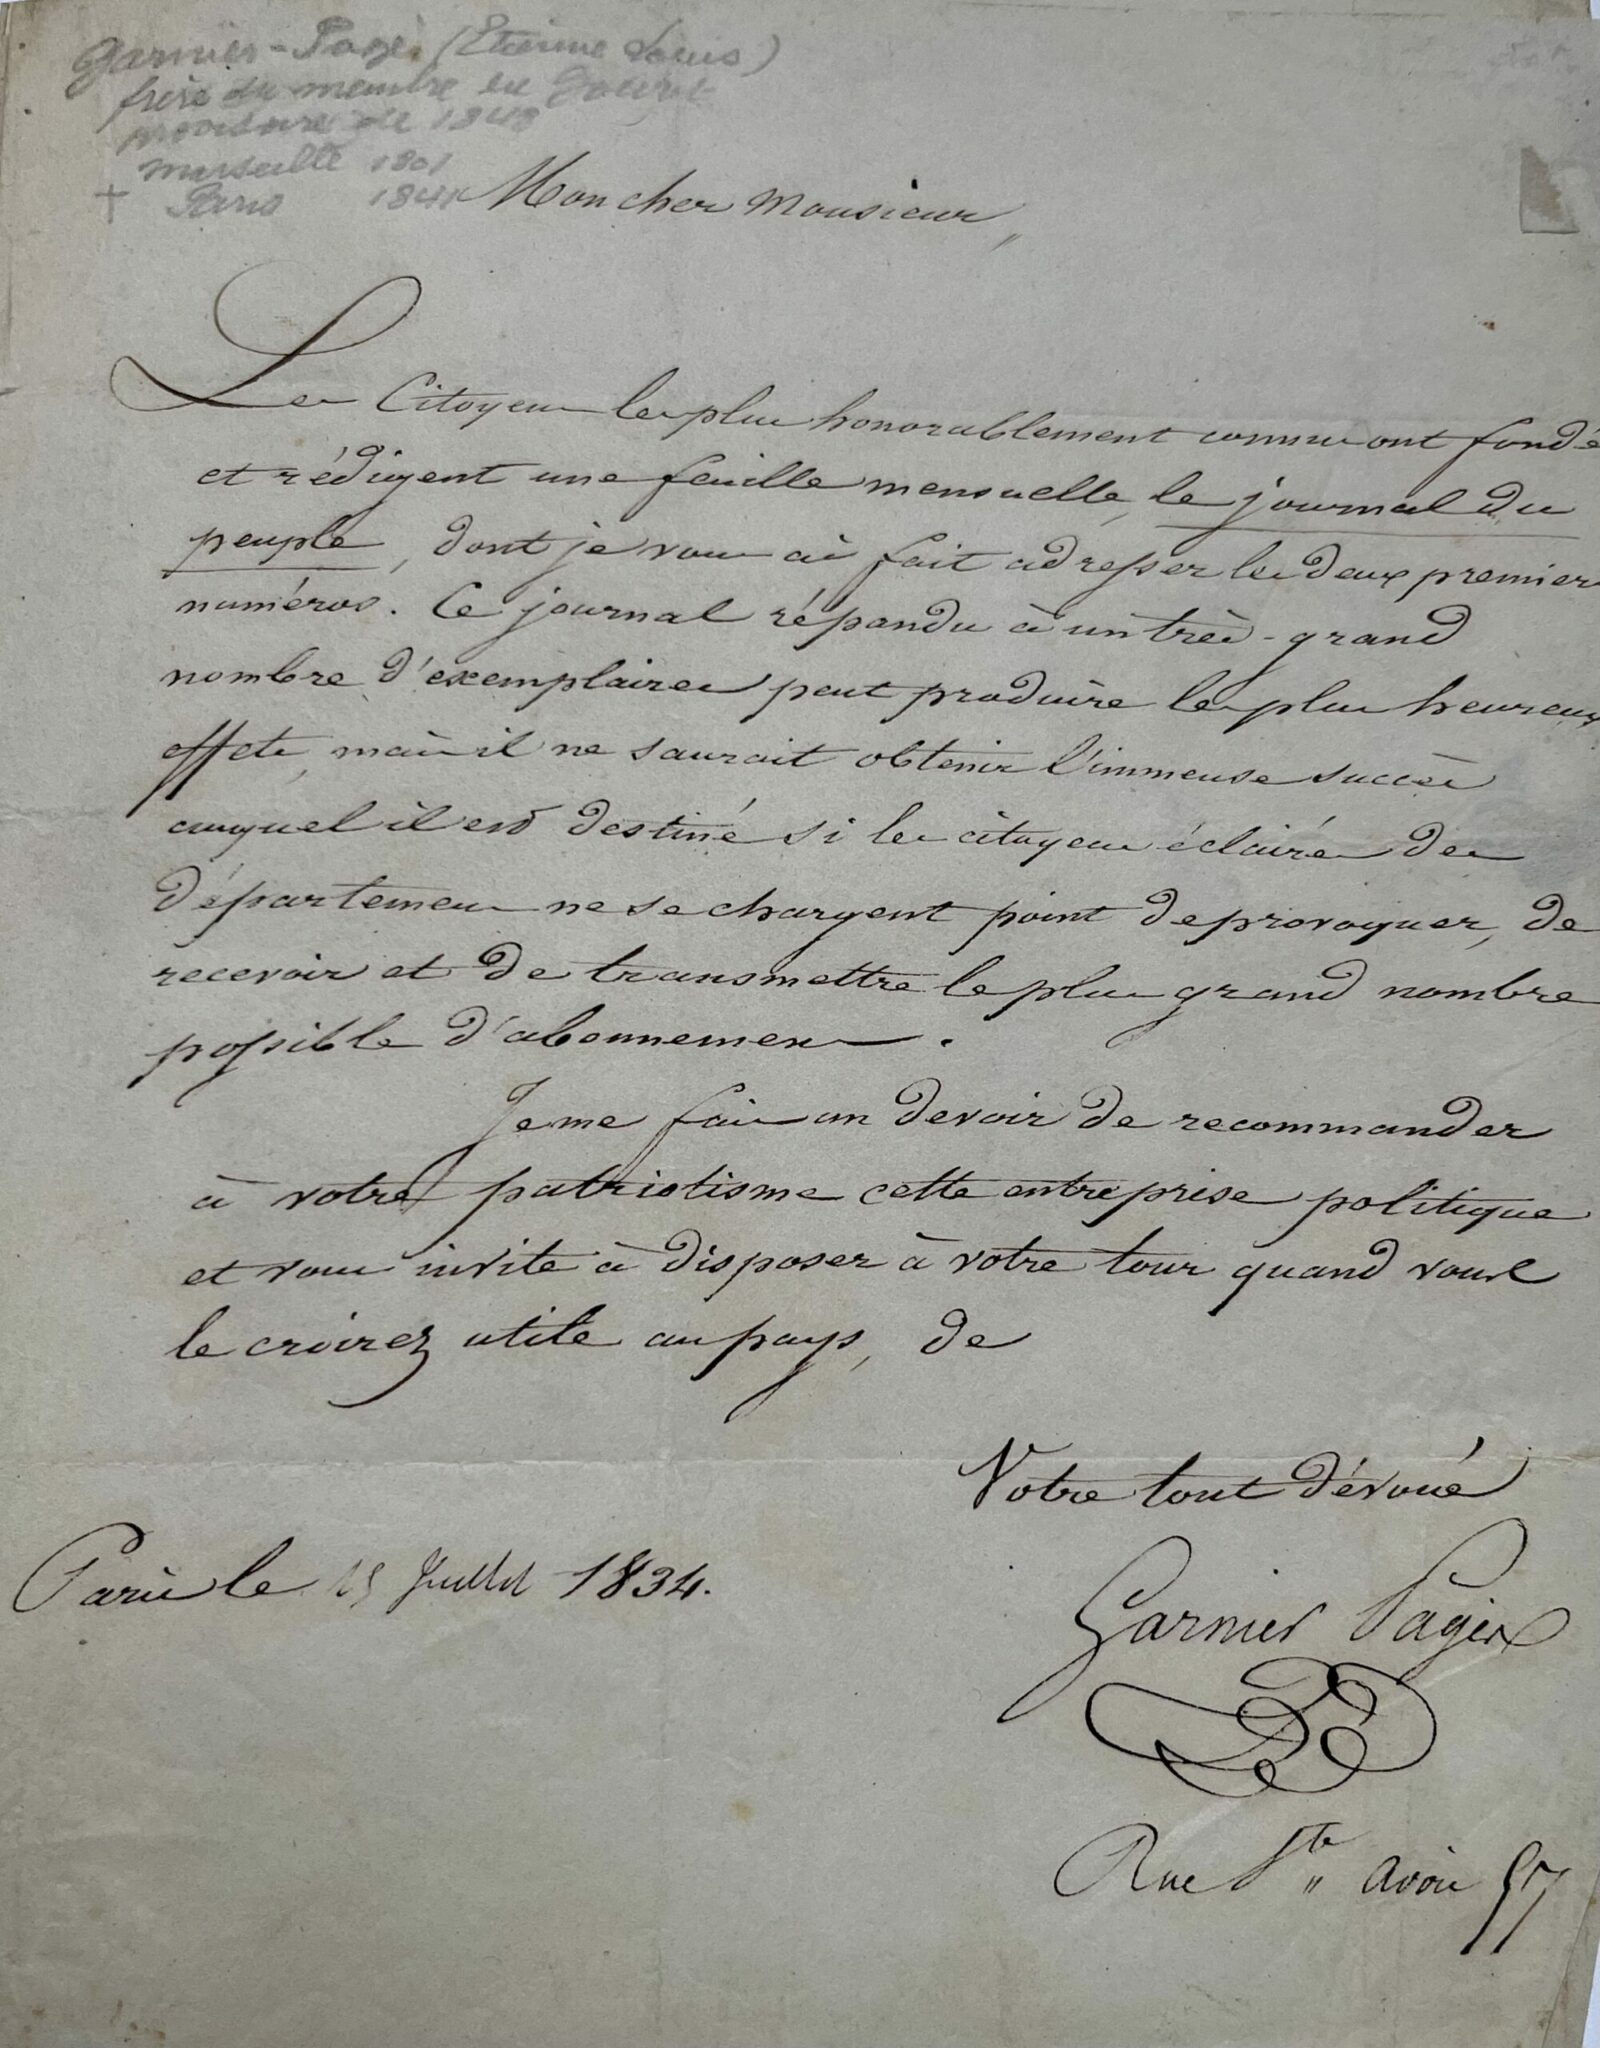 Garnier-Pagès (Etienne Louis)
frère du membre du Gouvt
provisoire de 1848
Marseille 1801
† Paris 1841
Mon cher Monsieur,
Les Citoyens les plus honorablement connus ont fondé
et rédigent une feuille mensuelle, le journal du
peuple, dont je vous ai fait adresser les deux premiers
numéros. Ce journal répandu à un très-grand
nombre d'exemplaires peut produire les plus heureux
effets, mais il ne saurait obtenir l'immense succès
auquel il est destiné si les citoyens éclairés des
départemens ne se chargent point de provoquer, de
recevoir et de transmettre le plus grand nombre
possible d'abonnemens.
Je me fais un devoir de recommander
à votre patriotisme cette entreprise politique
et vous invite à disposer à votre tour quand vous
le croirez utile au pays, de
Votre tout dévoué
Paris le 15 Juillet 1834.
Garnier Pagès
Rue Ste Avoie 57